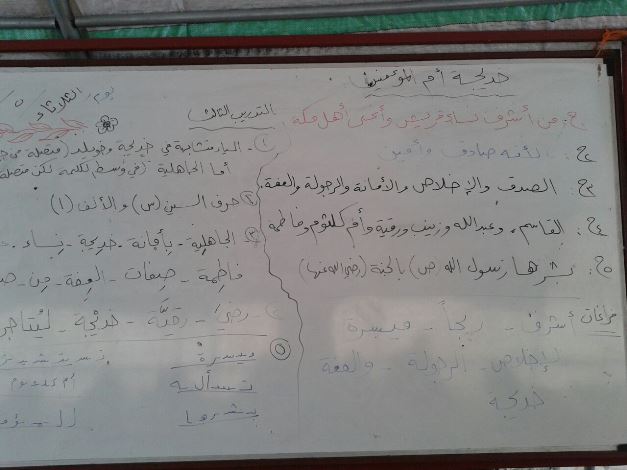 خديجة أم المؤمنين
ج١: من أشرف نساء قريش وأغنى أهل مكة
ج٢: لأنه صادق وأمين
ج٣: الصدق والإخلاص والأمانة والرجولة والعفة.
ج٤: القاسم، وعبدالله وزينب ورقية وأم كلثوم وفاطمة
ج٥: بشرها رسول الله (ص) بالجنة (رضي الله عنها)
فراغات أشرف - ربحاً - ميسرة
الإخلاص - الرجولة - والعفة
خديجة
يوم: الثلاثاء
التدريب الثالث
١- الياء متشابهة في خديجة وخويلد (متصلة
أما الجاهلية (في وسط الكلمة لكن متصلة
٢ حرف السين (س) والألف (ا)
٣ الجاهلية - بأمانة - خديجة - نساء -
فاطمة - صفات - العفة - من -
٤ - رضي - رقيّة - خديجة - ليتاجر
٥ ميسرة
تسأله
بشرها